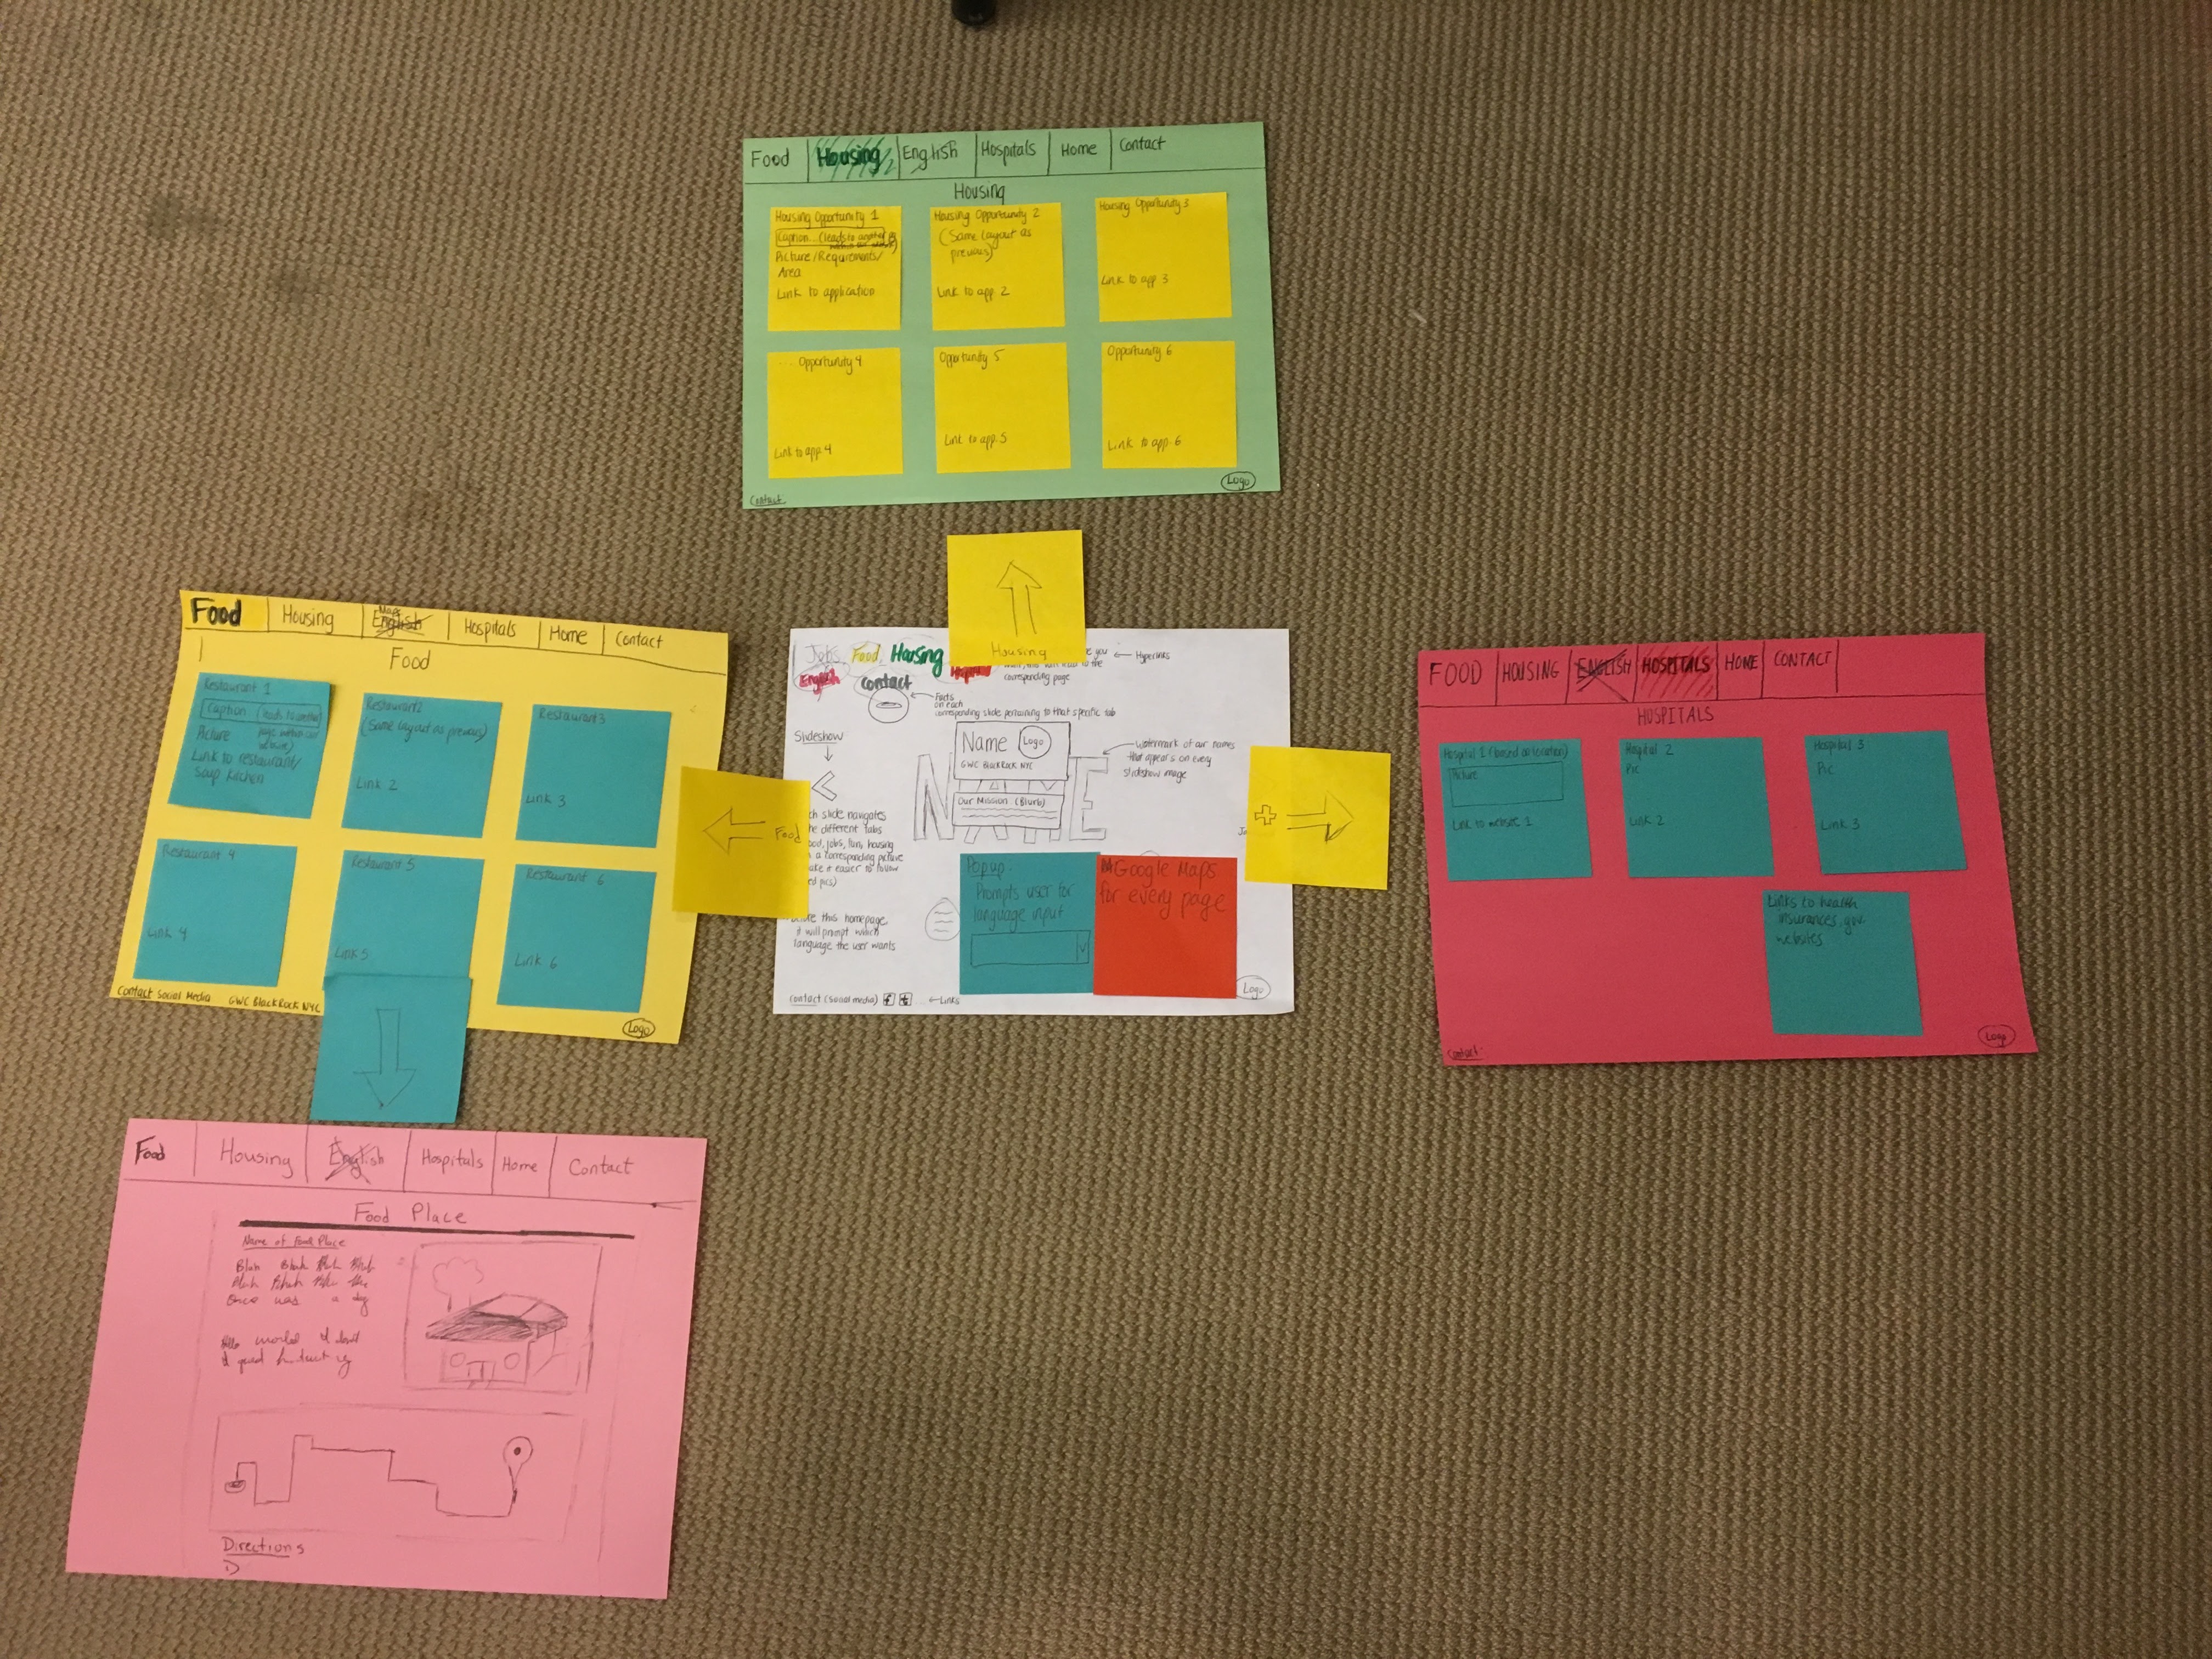 Food
Housing
English
Hospitals
Home
Contact
Housing
Housing Opportunity 1
Caption... (leads to another
Picture/Requirements/
Area
Link to application
Housing Opportunity 2
(Same layout as
previous)
Link to app 2
Housing Opportunity 3
Link to app 3
.... Opportunity 4
Link to app 4
Opportunity 5
Link to app. 5
Opportunity 6
Link to app. 6
Contact
Logo
Housing
Food
Housing
Maps
English
Hospitals
Home
Contact
Food
Restaurant 1
Caption (leads to another
page within our
website)
Picture
Link to restaurant/
Soup Kitchen
Restaurant 2
(Same layout as previous)
Link 2
Restaurant 3
Link 3
Restaurant 4
Link 4
Restaurant 5
Link 5
Restaurant 6
Link 6
Contact Social Media
GWC BlackRock NYC
Logo
Food
Jobs
Food
Housing
English
Contact
you
← Hyperlinks
corresponding page
Facts
on each
corresponding slide pertaining to that specific tab
Slideshow
Name
Logo
GWC BlackRock NYC
Our Mission (Blurb)
watermark of our names
that appears on every
slideshow image
slide navigates
different tabs
jobs, fun, housing
a corresponding picture
easier to follow
pics)
this homepage,
it will prompt which
language the user wants
Popup:
Prompts user for
language input
Google Maps
for every page
Contact (social media) f t ← Links
Logo
FOOD
HOUSING
ENGLISH
HOSPITALS
HOME
CONTACT
HOSPITALS
Hospital 1 (based on location)
Picture
Link to website 1
Hospital 2
Pic
Link 2
Hospital 3
Pic
Link 3
Links to health
insurances, gov
websites
Contact:
Logo
Food
Housing
English
Hospitals
Home
Contact
Food Place
Name of Food Place
Blah Blah Blah Blah
Once was a dog
Directions